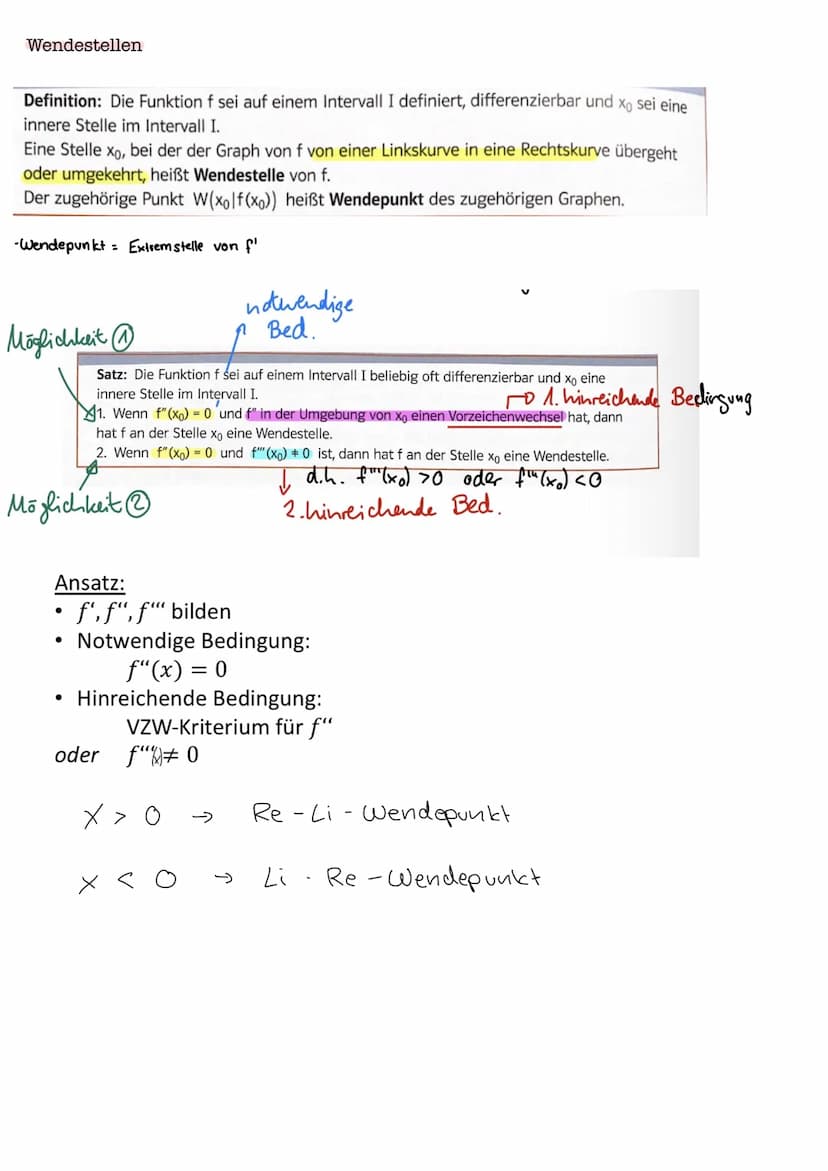 Wendestellen
Definition: Die Funktion f sei auf einem Intervall I definiert, differenzierbar und x₀ sei eine
innere Stelle im Intervall I.
Eine Stelle x₀, bei der der Graph von f von einer Linkskurve in eine Rechtskurve übergeht
oder umgekehrt, heißt Wendestelle von f.
Der zugehörige Punkt W(x₀|f(x₀)) heißt Wendepunkt des zugehörigen Graphen.
-Wendepunkt = Extremstelle von f'
notwendige
Bed.
Möglichkeit ①
Satz: Die Funktion f sei auf einem Intervall I beliebig oft differenzierbar und x₀ eine
innere Stelle im Intervall I.
1. hinreichende Bedingung
1. Wenn f''(x₀) = 0 und f'' in der Umgebung von x₀ einen Vorzeichenwechsel hat, dann
hat f an der Stelle x₀ eine Wendestelle.
2. Wenn f''(x₀) = 0 und f'''(x₀) ≠ 0 ist, dann hat f an der Stelle x₀ eine Wendestelle.
↓ d.h. f'''(x₀) > 0 oder f'''(x₀) < 0
Möglichkeit ②
2. hinreichende Bed.
Ansatz:
• f‘, f“, f“‘ bilden
• Notwendige Bedingung:
f“(x) = 0
• Hinreichende Bedingung:
VZW-Kriterium für f“
oder f“‘(x) ≠ 0
x > 0 → Re - Li - Wendepunkt
x < 0 → Li - Re - Wendepunkt